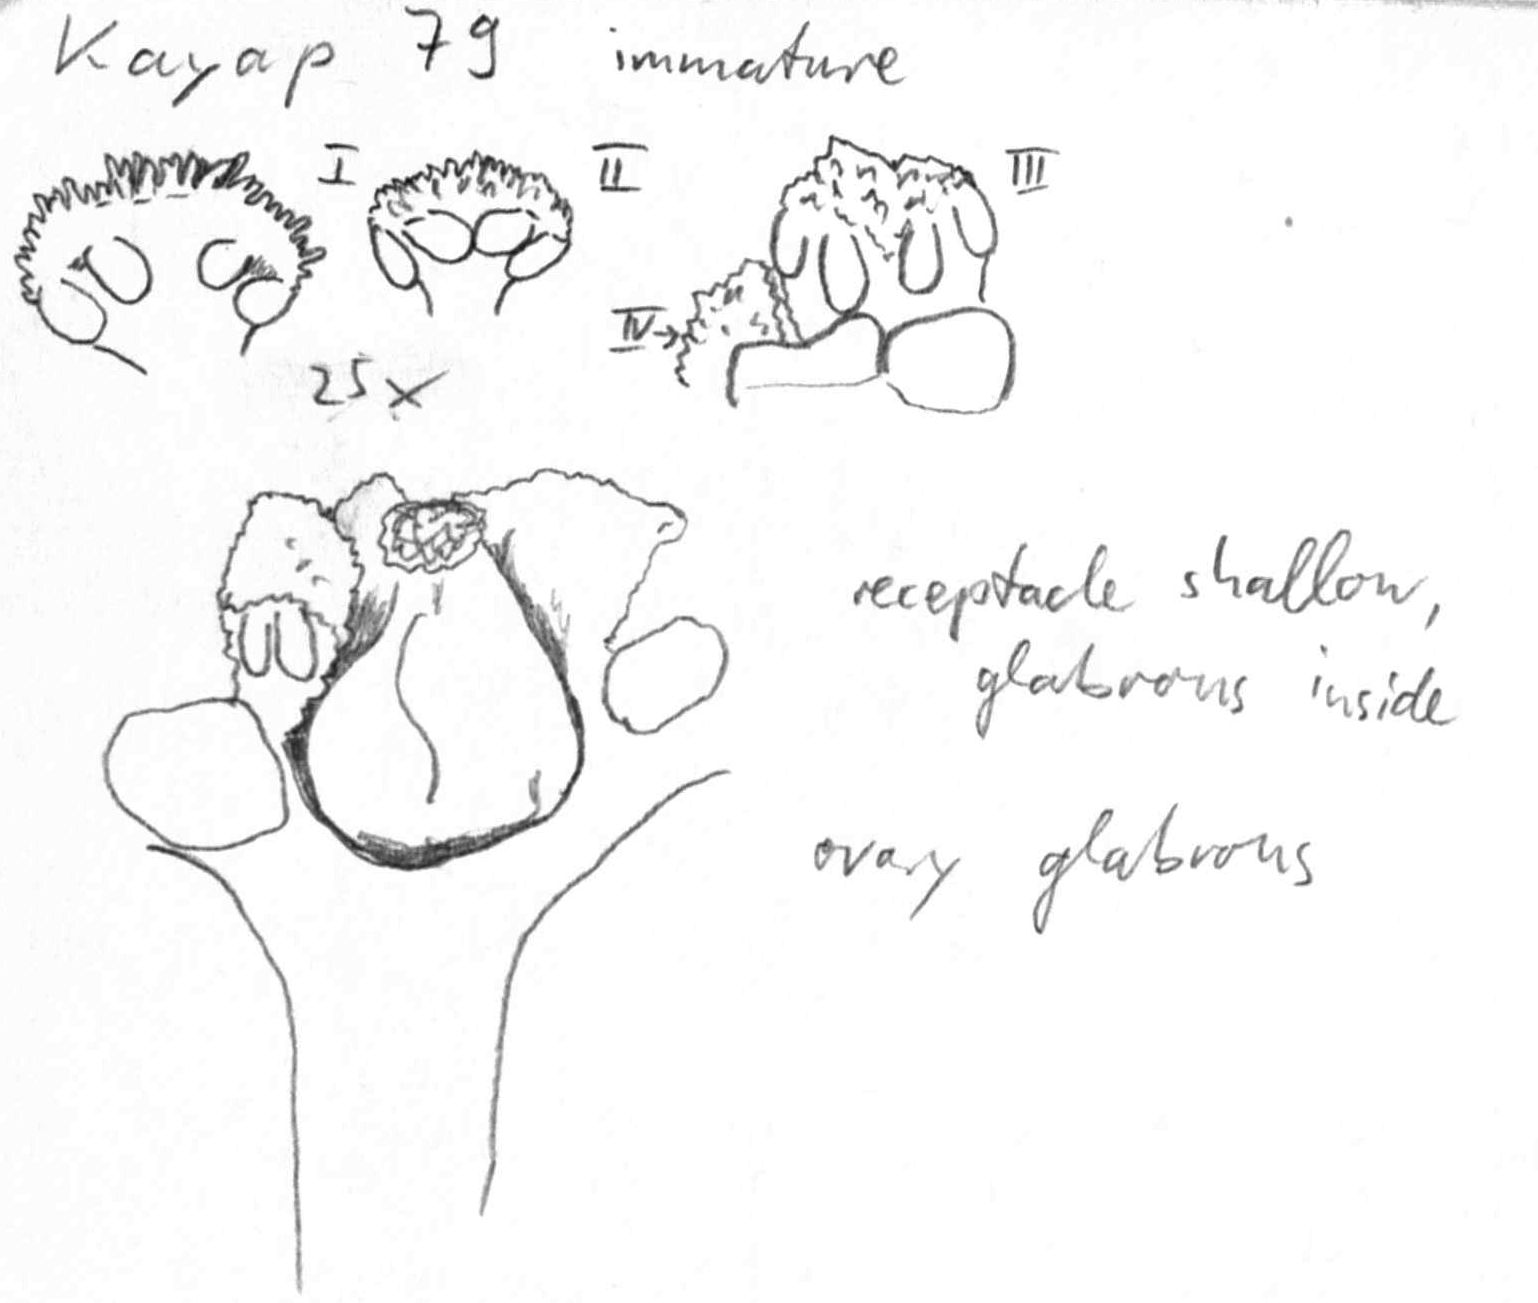 Kayap 79 immature
I II III
IV
25 x
receptacle shallow,
glabrous inside
ovary glabrous